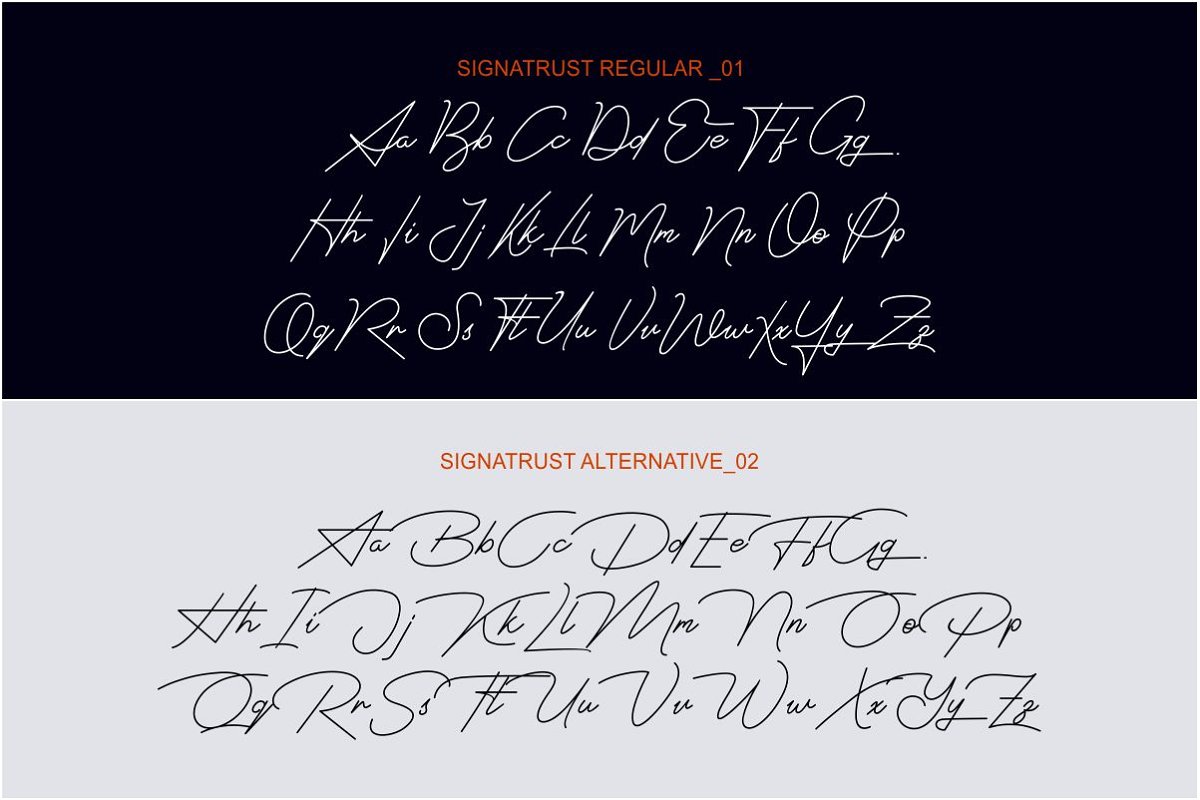 SIGNATRUST REGULAR _01
Aa Bb Cc Dd Ee Ff Gg.
Hh Ii Jj Kk Ll Mm Nn Oo Pp
Qq Rr Ss Tt Uu Vv Ww Xx Yy Zz
SIGNATRUST ALTERNATIVE_02
Aa Bb Cc Dd Ee Ff Gg.
Hh Ii Jj Kk Ll Mm Nn Oo Pp
Qq Rr Ss Tt Uu Vv Ww Xx Yy Zz